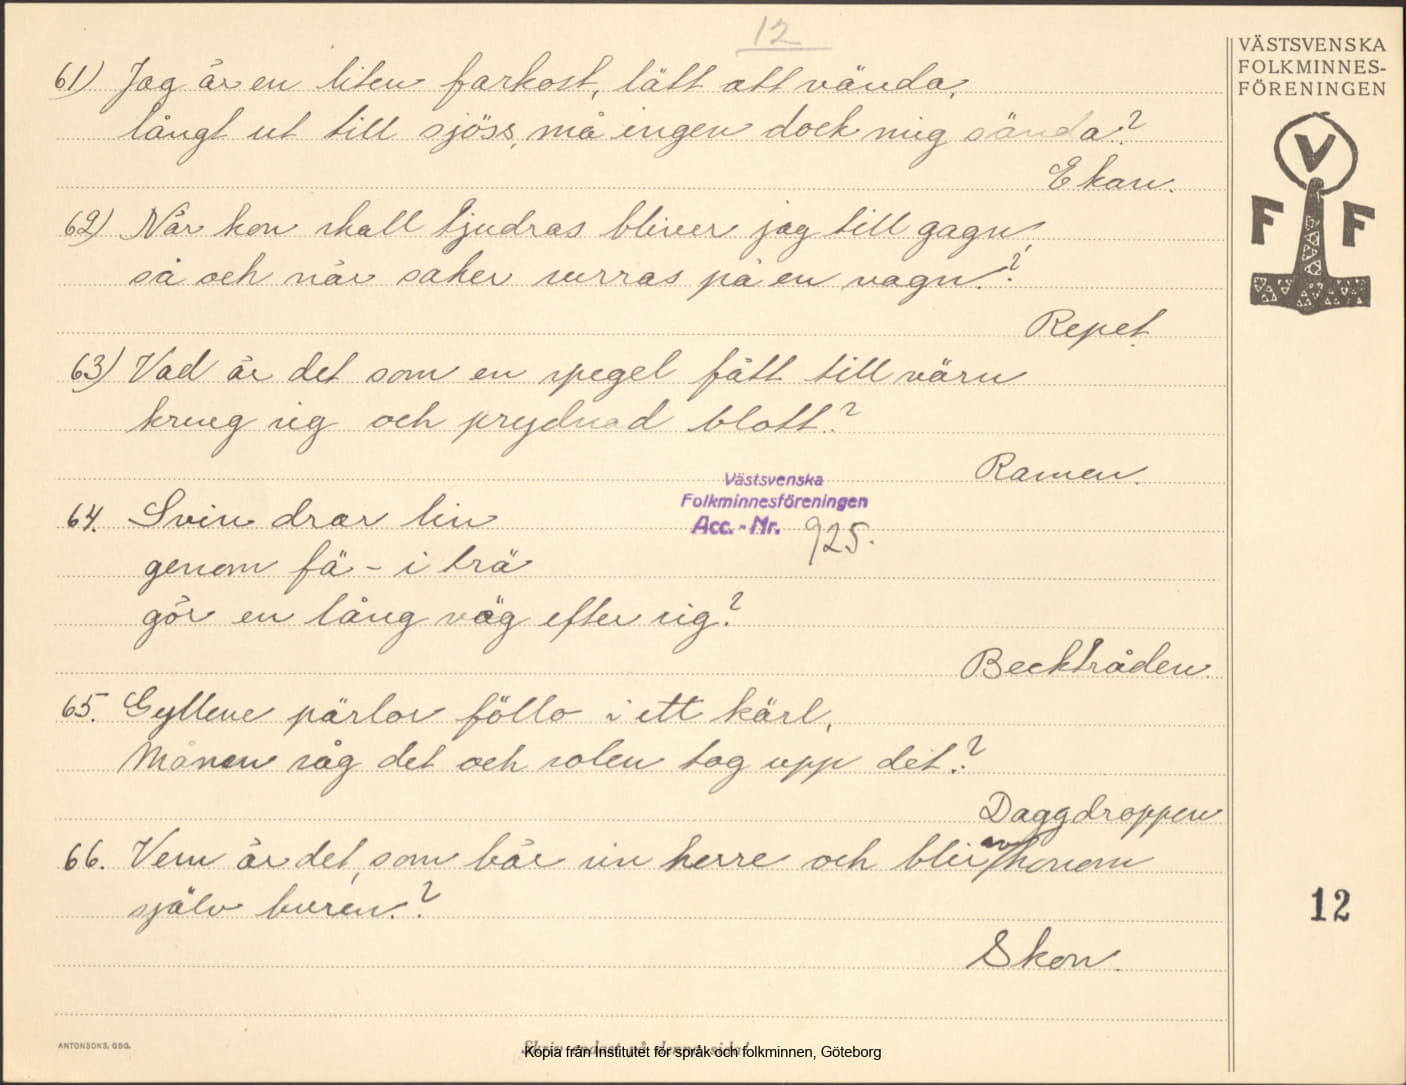 12
VÄSTSVENSKA
FOLKMINNES-
FÖRENINGEN
V
F F
61) Jag är en liten farkost, lätt att vända,
långt ut till sjöss, må ingen dock mig sända?
Ekan.
62) När kon skall tjudras bliver jag till gagn,
så och när saker surras på en vagn.?
Repet.
63) Vad är det som en spegel fått till värn
kring sig och prydnad blott?
Ramen.
Västsvenska
Folkminnesföreningen
Acc. - Nr. 925.
64. Svin drar lin
genom fä - i trä
gör en lång väg efter sig?
Becktråden.
65. Gyllene pärlor föllo i ett kärl,
Månen såg det och solen tog upp det.?
Daggdroppen
66. Vem är det, som bär sin herre och blir av honom
själv buren.?
Skon.
12
ANTONSONS, GBG.
Skriv endast på denna sida!
Kopia från Institutet för språk och folkminnen, Göteborg